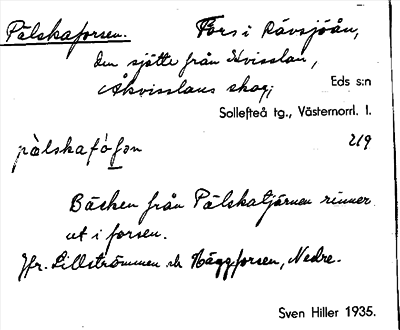 Pälskaforsen. Fors i Rävsjöån,
den sjätte från Kvisslan,
Åkvisslans skog,
Eds s:n
Sollefteå tg., Västernorrl. l.
pälskafófon 219
Bäcken från Pälskatjärnen rinner
ut i forsen.
Jfr. Lillströmmen o. Häggforsen, Nedre.
Sven Hiller 1935.